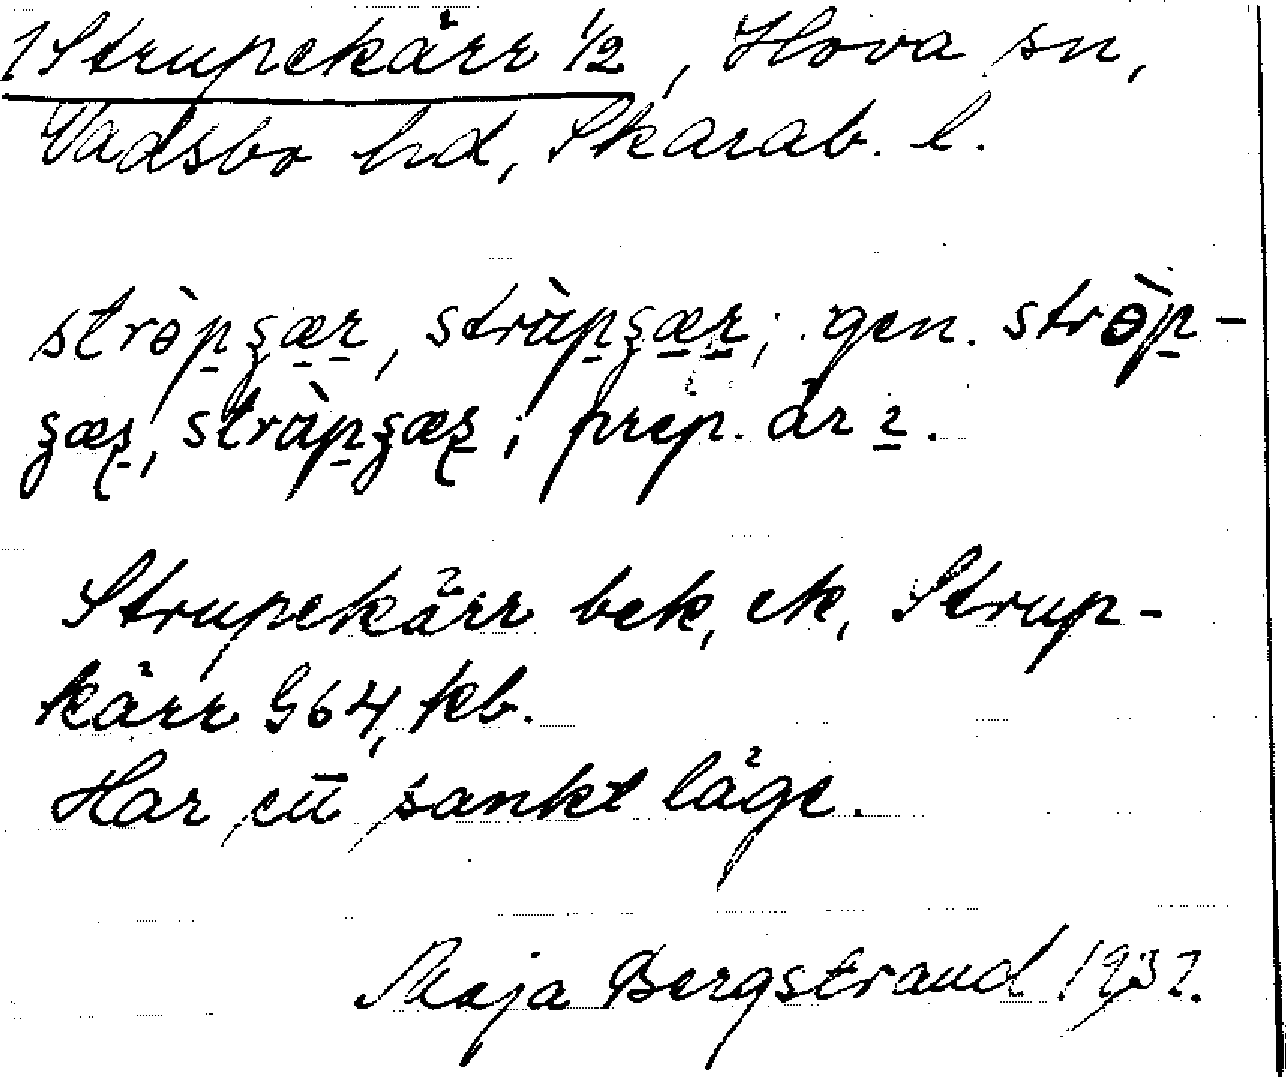 1 Strupekärr 1/2, Hova sn,
Vadsbo hd, Skarab. l.
strɵ̀pʂær, stràpʂær; gen. strɵ̀p-
ʂæʂ, stràpʂæʂ; prep.år 2.
Strupekärr bek, ek, Strup-
kärr G64, kb.
Har ett sankt läge.
Maja Bergstrand 1937.